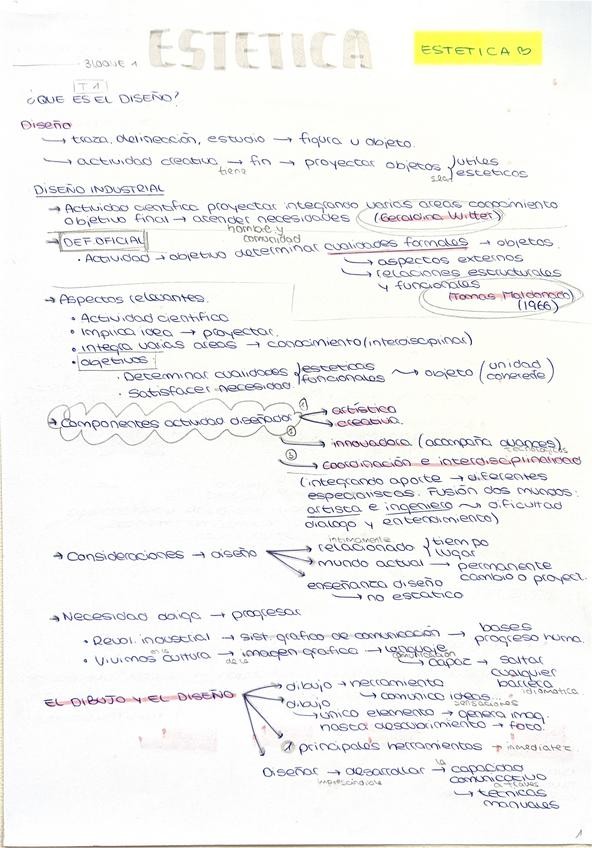 BLOQUE 1
ESTETICA
ESTETICA ♡
T1
¿QUE ES EL DISEÑO?
Diseño
↳ traza, delineación, estudio → figura u objeto.
↳ actividad creativa → tiene fin → proyectar objetos sean útiles
estéticos
DISEÑO INDUSTRIAL
→ Actividad científica proyectar integrando varias areas conocimiento
objetivo final → atender necesidades (Geraldina Witter)
hombre y
comunidad
→ DEF. OFICIAL
• Actividad → objetivo determinar cualidades formales → objetos.
↳ aspectos externos
↳ relaciones estructurales
y funcionales
(Tomas Maldonado)
(1966)
→ Aspectos relevantes.
• Actividad científica
• Implica idea → proyectar.
• Integra varias areas → conocimiento (interdisciplinar)
• objetivos:
· Determinar cualidades estéticas
funcionales → objeto (unidad
coherete)
· Satisfacer necesidad.
→ Componentes actividad diseñador ① → artística
→ creativa.
② → innovadora (acompaña avances)
tecnológicos
③ → coordinación e interdisciplinalidad
(integrando aporte → diferentes
especialistas. Fusión dos mundos:
artista e ingeniero → dificultad
dialogo y entendimiento)
→ Consideraciones → diseño → intimamente relacionado tiempo
lugar
→ mundo actual → permanente
cambio o proyect.
enseñanza diseño
↳ no estatico
→ Necesidad obliga → progresar
• Revol. industrial → sist. grafico de comunicación → bases
progreso huma.
• Vivimos en la cultura → de la imagen grafica → lenguaje
comunicación
↳ capaz → saltar
cualquier
barrera
idiomatica
EL DIBUJO Y EL DISEÑO → dibujo → herramienta
↳ comunica ideas...
sensaciones
dibujo
↳ unico elemento → genera imag.
hasta descubrimiento → foto.
① principales herramientas → inmediatez
Diseñar → desarrollar → la capacidad
imprescindible
comunicativa
a través
↳ tecnicas
manuales
1